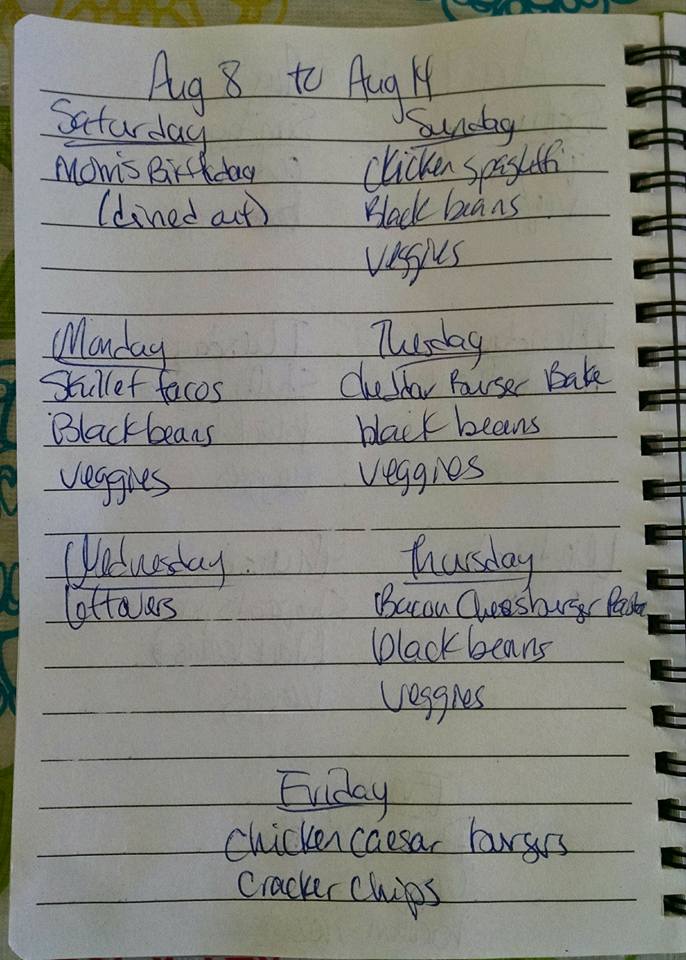 Aug 8 to Aug 14
Saturday
Mom's Birthday
(dined out)
Sunday
Chicken Spaghetti
Black beans
Veggies
Monday
Skillet tacos
Black beans
Veggies
Tuesday
Cheddar Burger Bake
black beans
Veggies
Wednesday
Leftovers
Thursday
Bacon Cheesburger Pasta
black beans
Veggies
Friday
Chicken Caesar burgers
Cracker chips